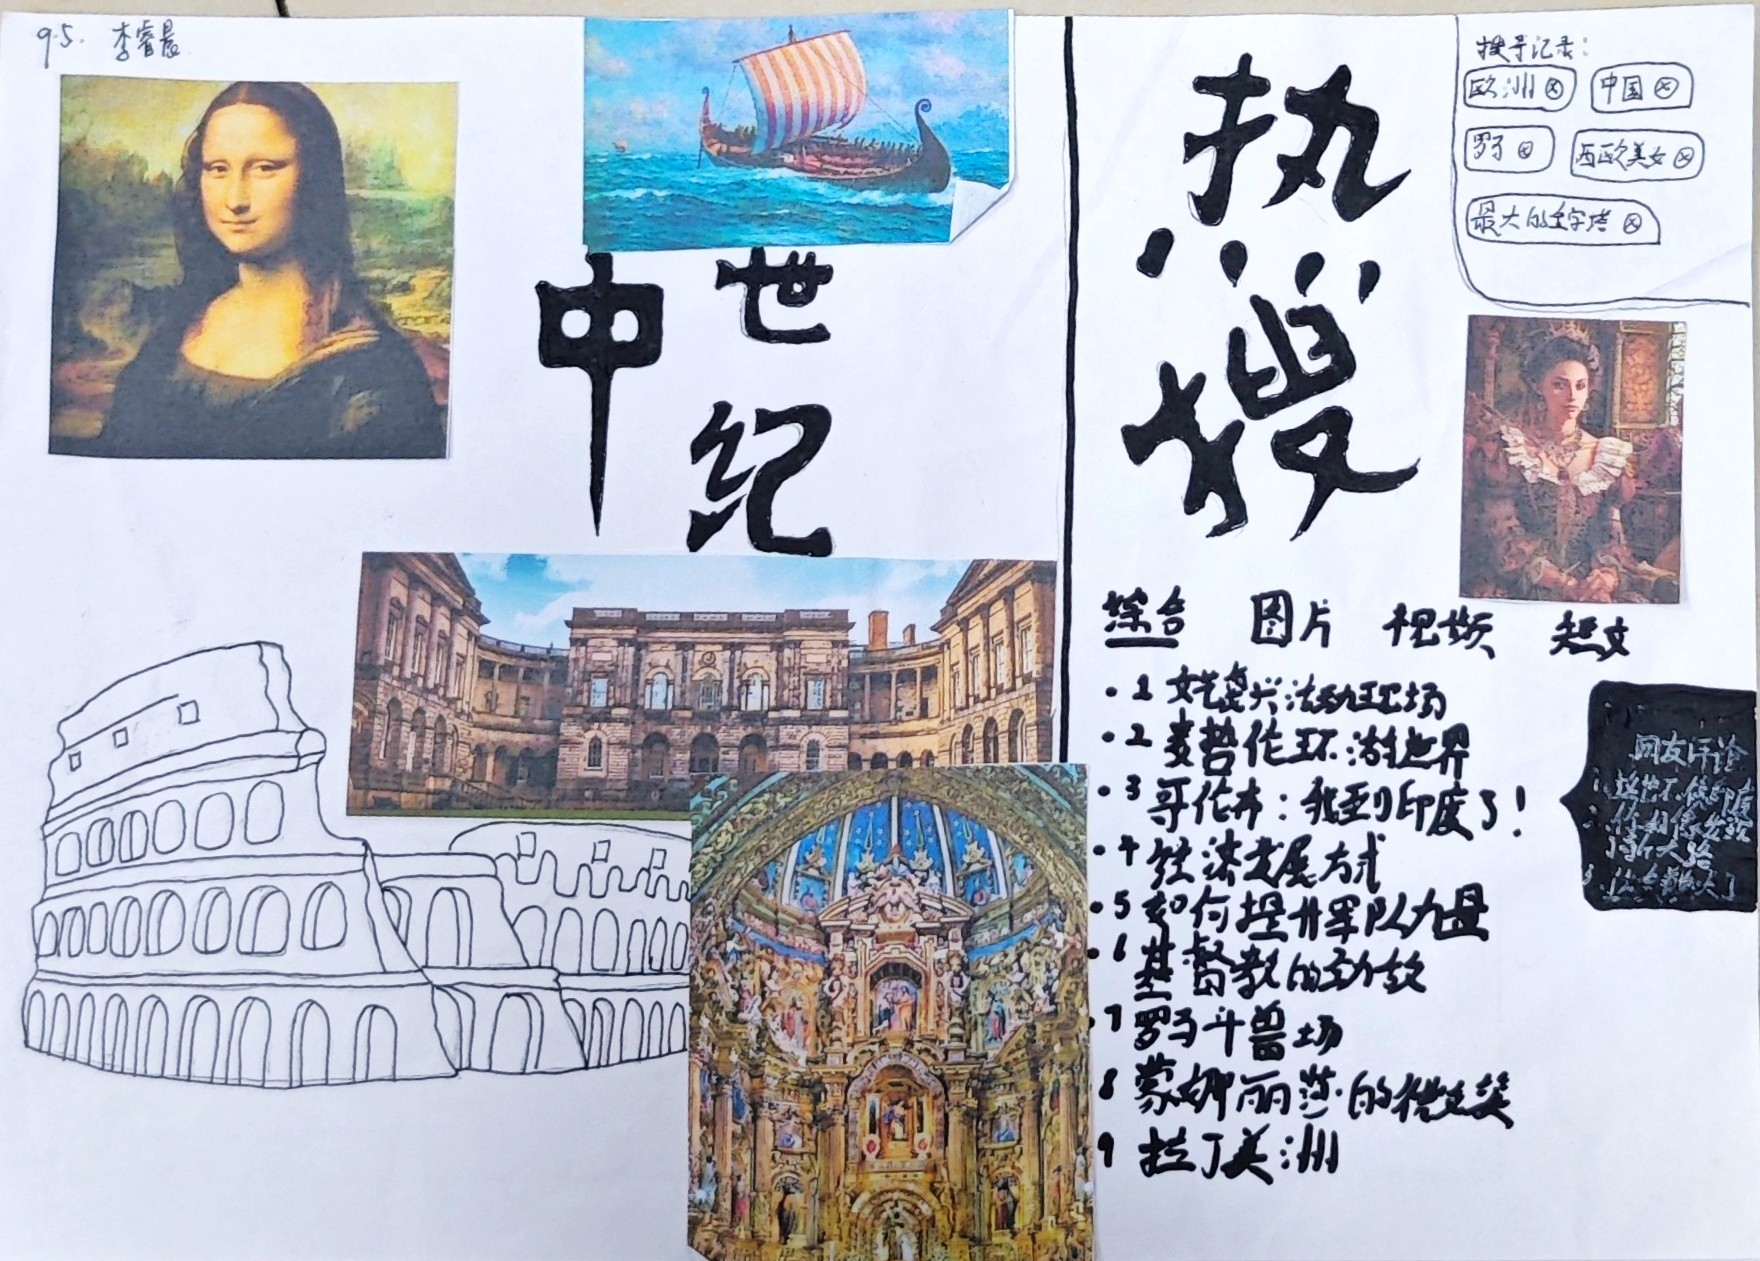 9.5. 李睿晨
中世纪
热搜
搜寻记录:
欧洲 ⊗ 中国 ⊗
罗马 ⊗ 西欧美女 ⊗
最大的金字塔 ⊗
综合 图片 视频 短文
·1 文艺复兴活动现场
·2 麦哲伦环游世界
·3 哥伦布:我到印度了!
·4 经济发展方式
·5 如何提升军队力量
·6 基督教的功效
·7 罗马斗兽场
8 蒙娜丽莎的微笑
9 拉丁美洲
网友评论